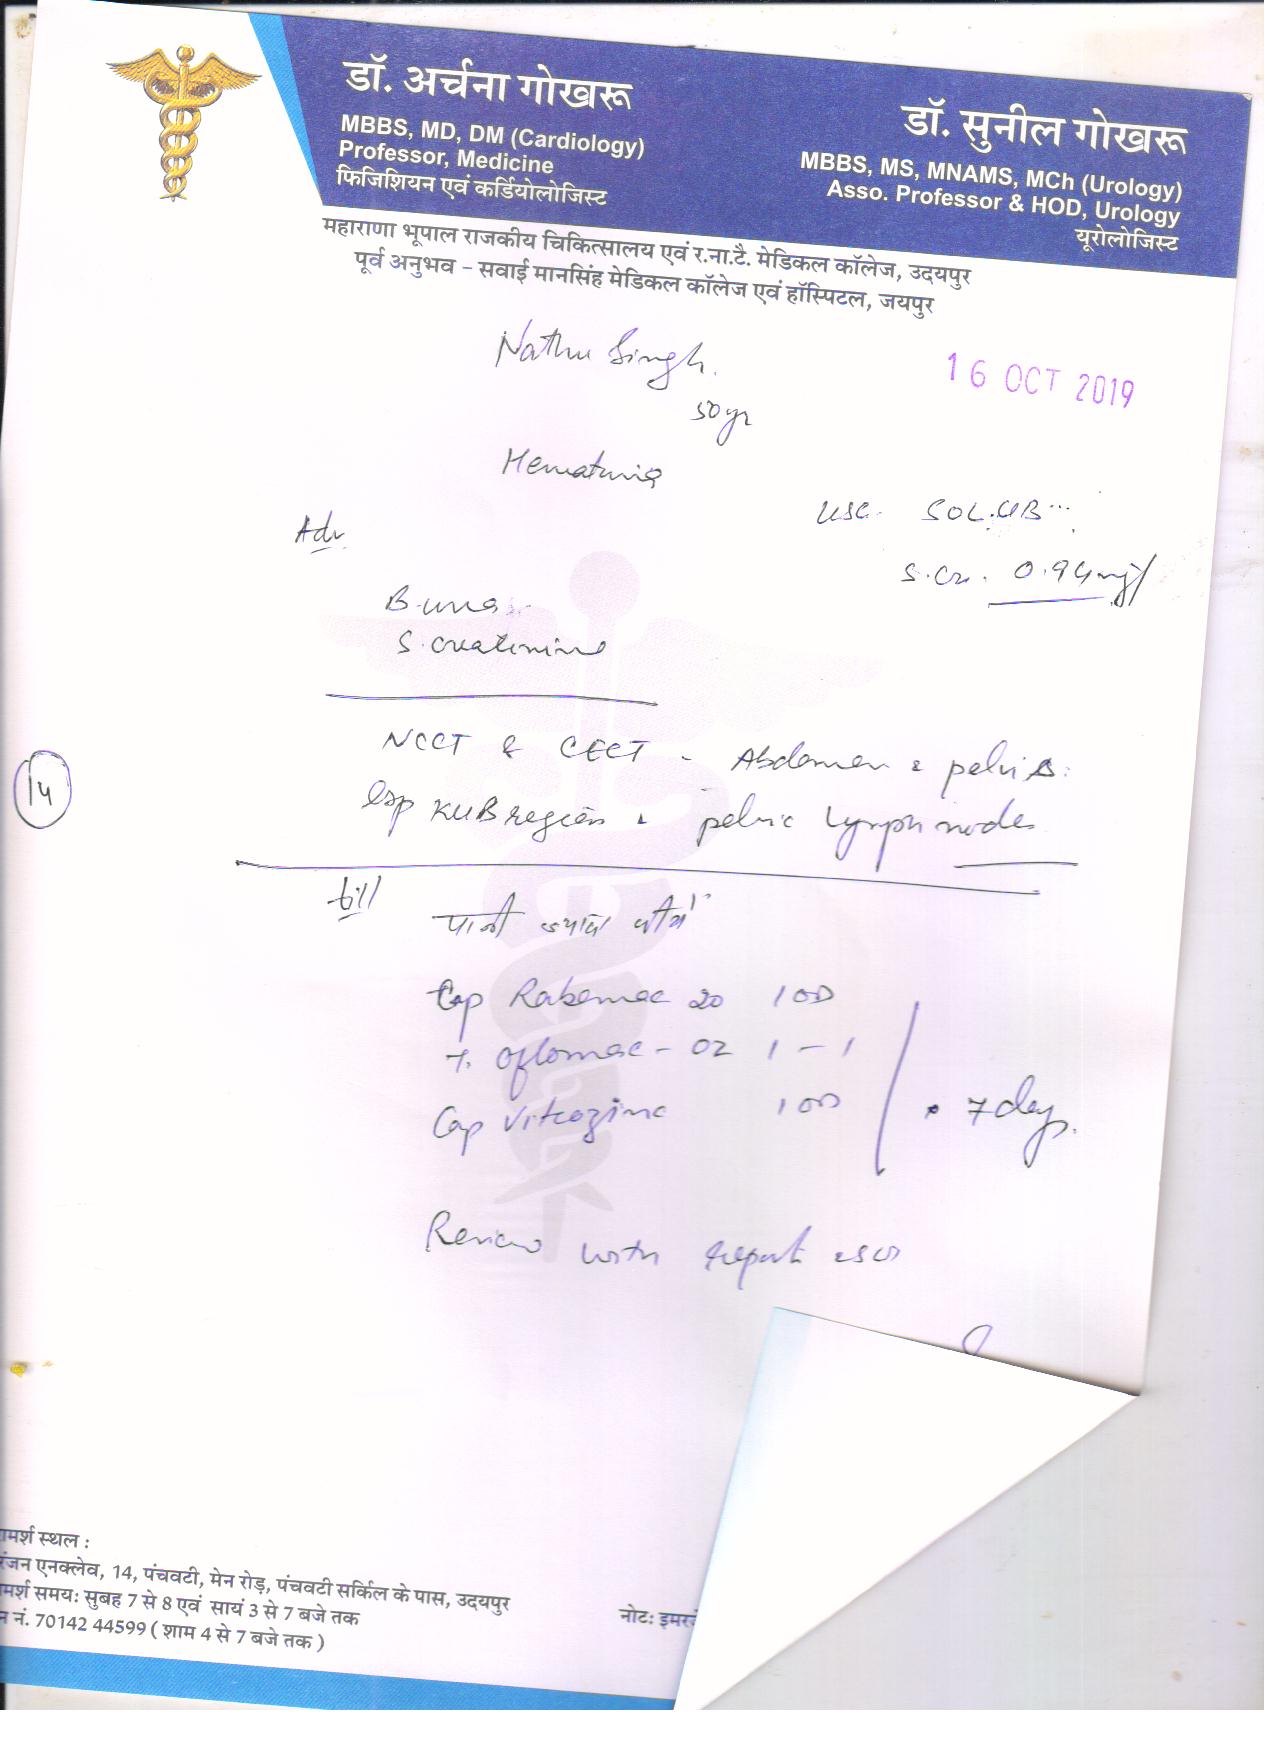 डॉ. अर्चना गोखरू
MBBS, MD, DM (Cardiology)
Professor, Medicine
फिजिशियन एवं कर्डियोलोजिस्ट
डॉ. सुनील गोखरू
MBBS, MS, MNAMS, MCh (Urology)
Asso. Professor & HOD, Urology
यूरोलोजिस्ट
महाराणा भूपाल राजकीय चिकित्सालय एवं र.ना.टै. मेडिकल कॉलेज, उदयपुर
पूर्व अनुभव - सवाई मानसिंह मेडिकल कॉलेज एवं हॉस्पिटल, जयपुर
Nathu Singh.
16 OCT 2019
50yr
Hematuria
Adv
S.Cr. 0.94mg/
B.urea
S.Creatinine
NCCT & CECT - Abdomen & pelvis.
esp KUB region & pelvic lymph nodes
14
पानी ज्यादा पीये
Cap Rabemac 20 1 OD
T. Oflomac - OZ 1 - 1
Cap Vitcozinc 1 OD
7 days.
Review with report
ामर्श स्थल :
रंजन एनक्लेव, 14, पंचवटी, मेन रोड़, पंचवटी सर्किल के पास, उदयपुर
मर्श समय: सुबह 7 से 8 एवं सायं 3 से 7 बजे तक
न नं. 70142 44599 ( शाम 4 से 7 बजे तक )
नोट: इमरजें